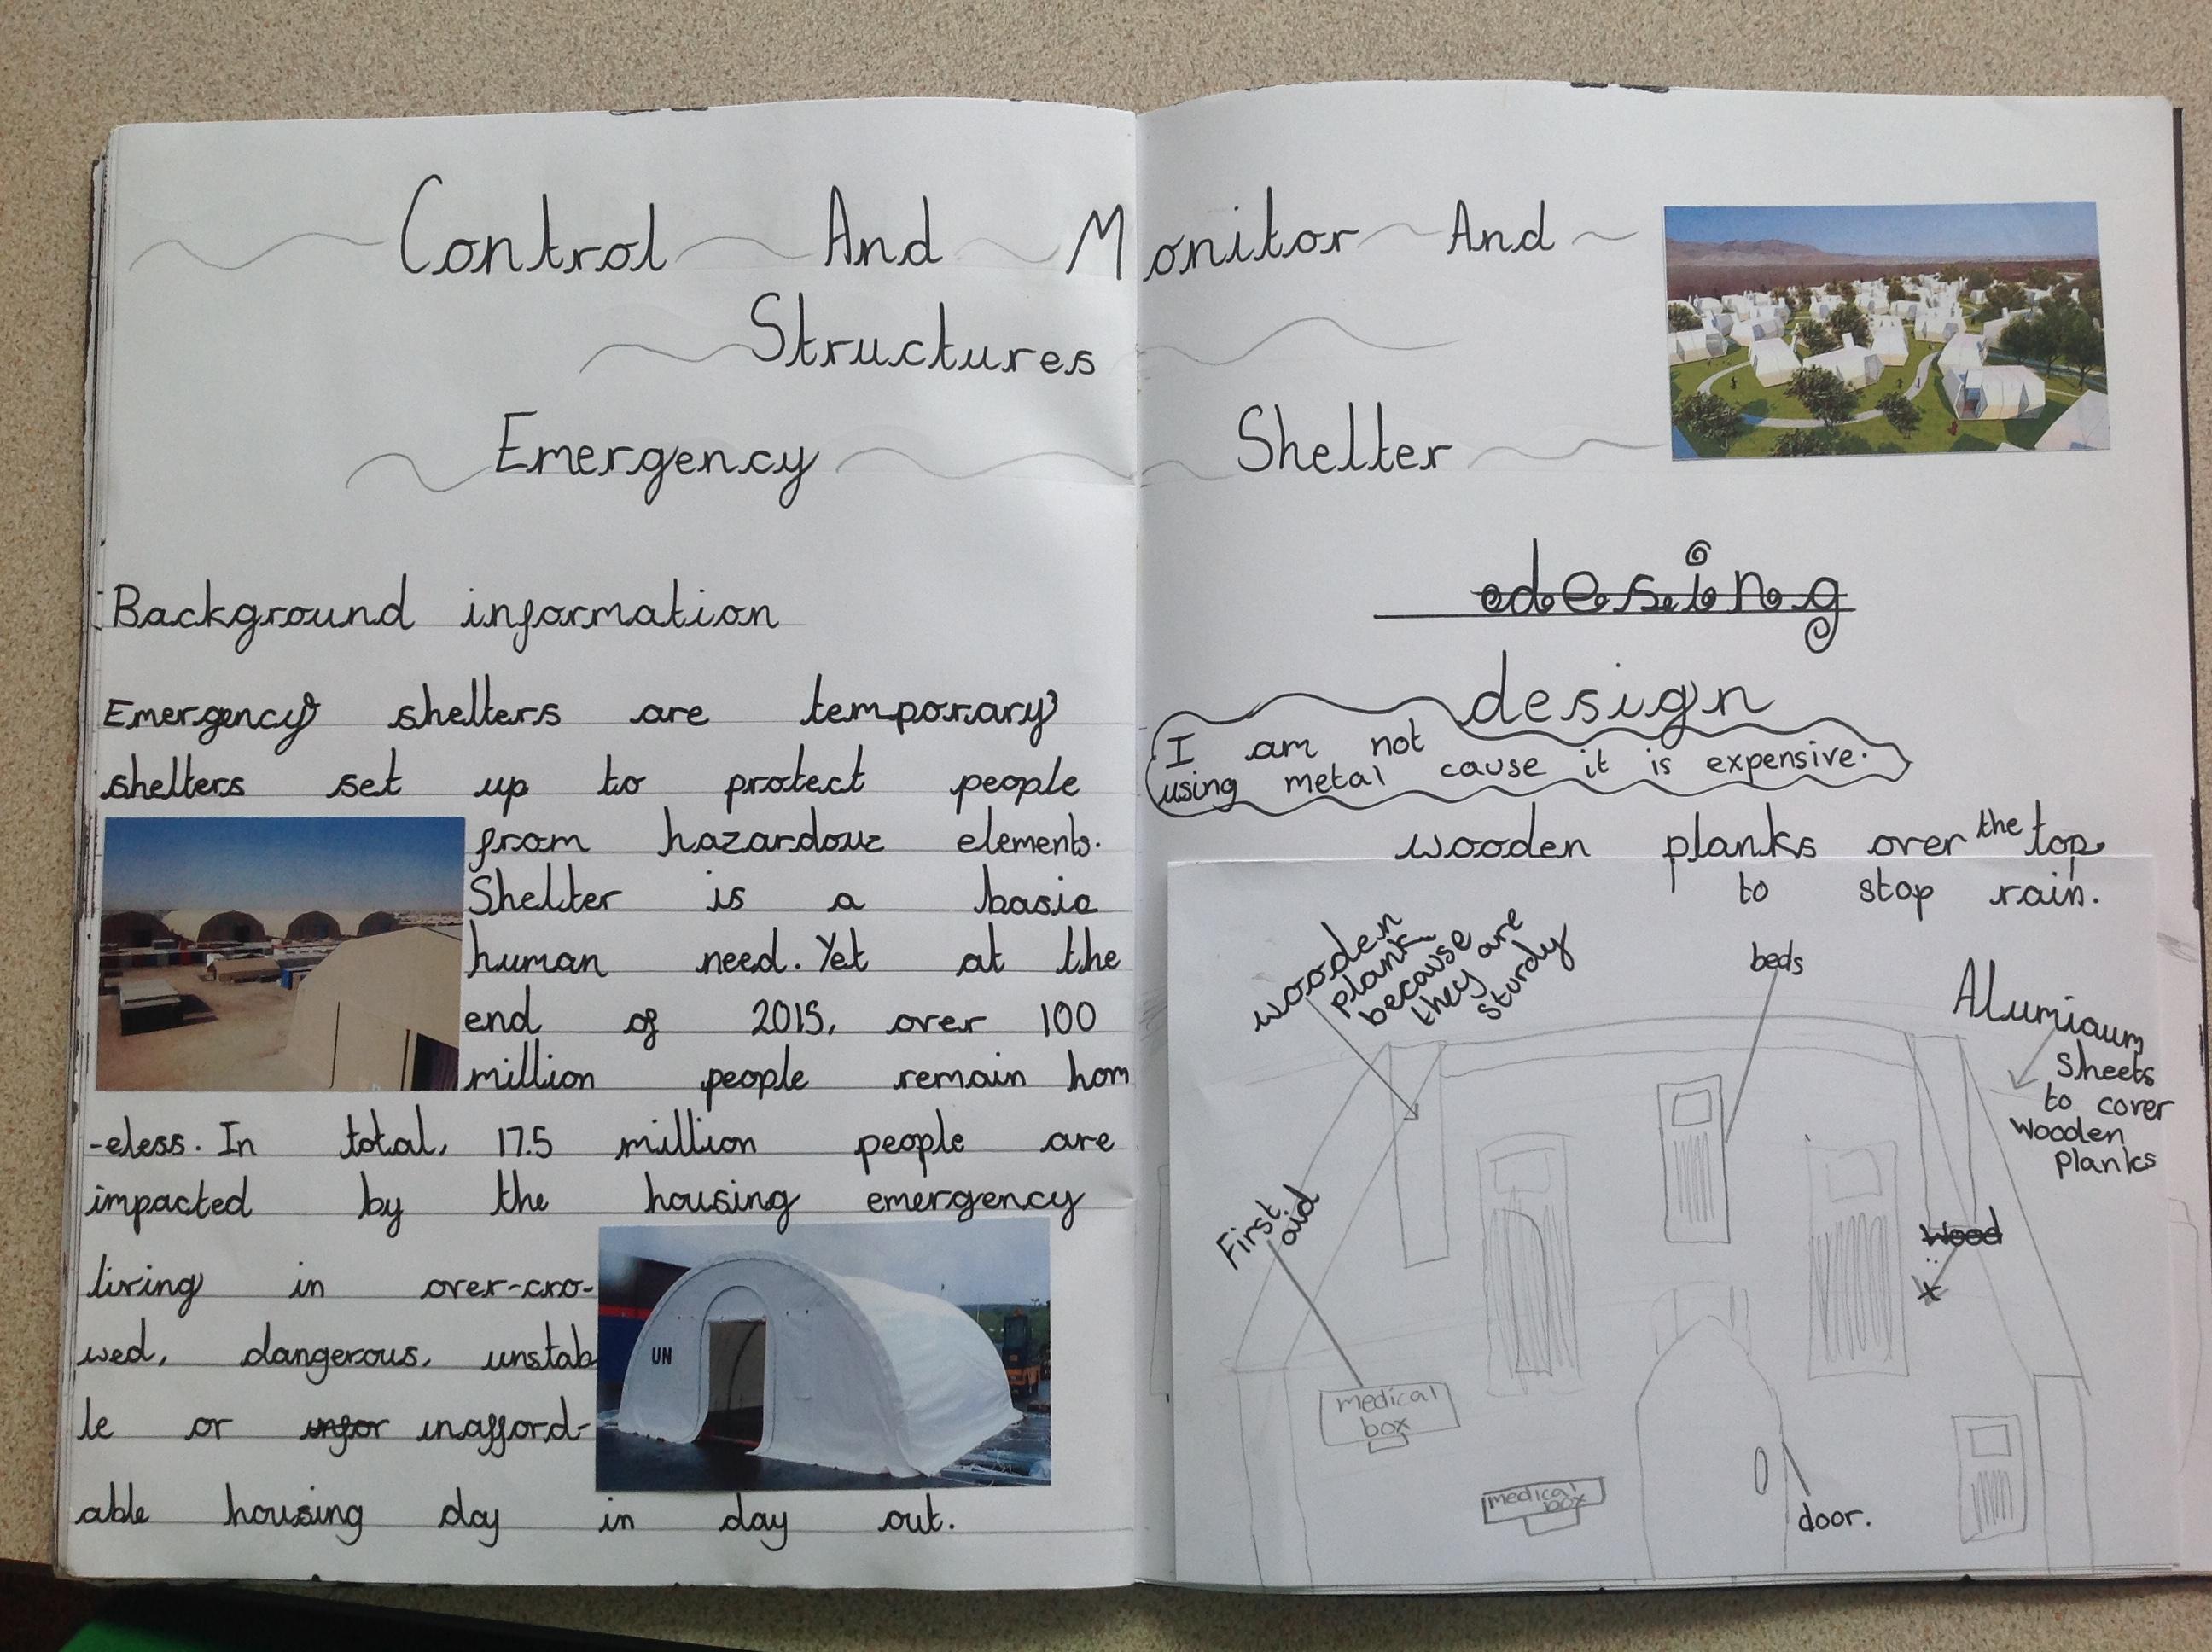 Control And Monitor And
Structures
Emergency Shelter
Background information
Emergency shelters are temporary
shelters set up to protect people
from hazardouz elements.
Shelter is a basic
human need. Yet at the
end of 2015, over 100
million people remain hom
-eless. In total, 17.5 million people are
impacted by the housing emergency
living in over-cro-
wed, dangerous, unstab
le or unfor inafford-
able housing day in day out.
UN
desing
design
I am not
using metal cause it is expensive.
wooden planks over the top
to stop rain.
wooden
plank
because
they are
sturdy
beds
Alumiaum
sheets
to cover
wooden
planks
First
aid
Wood
medical
box
medical
box
door.